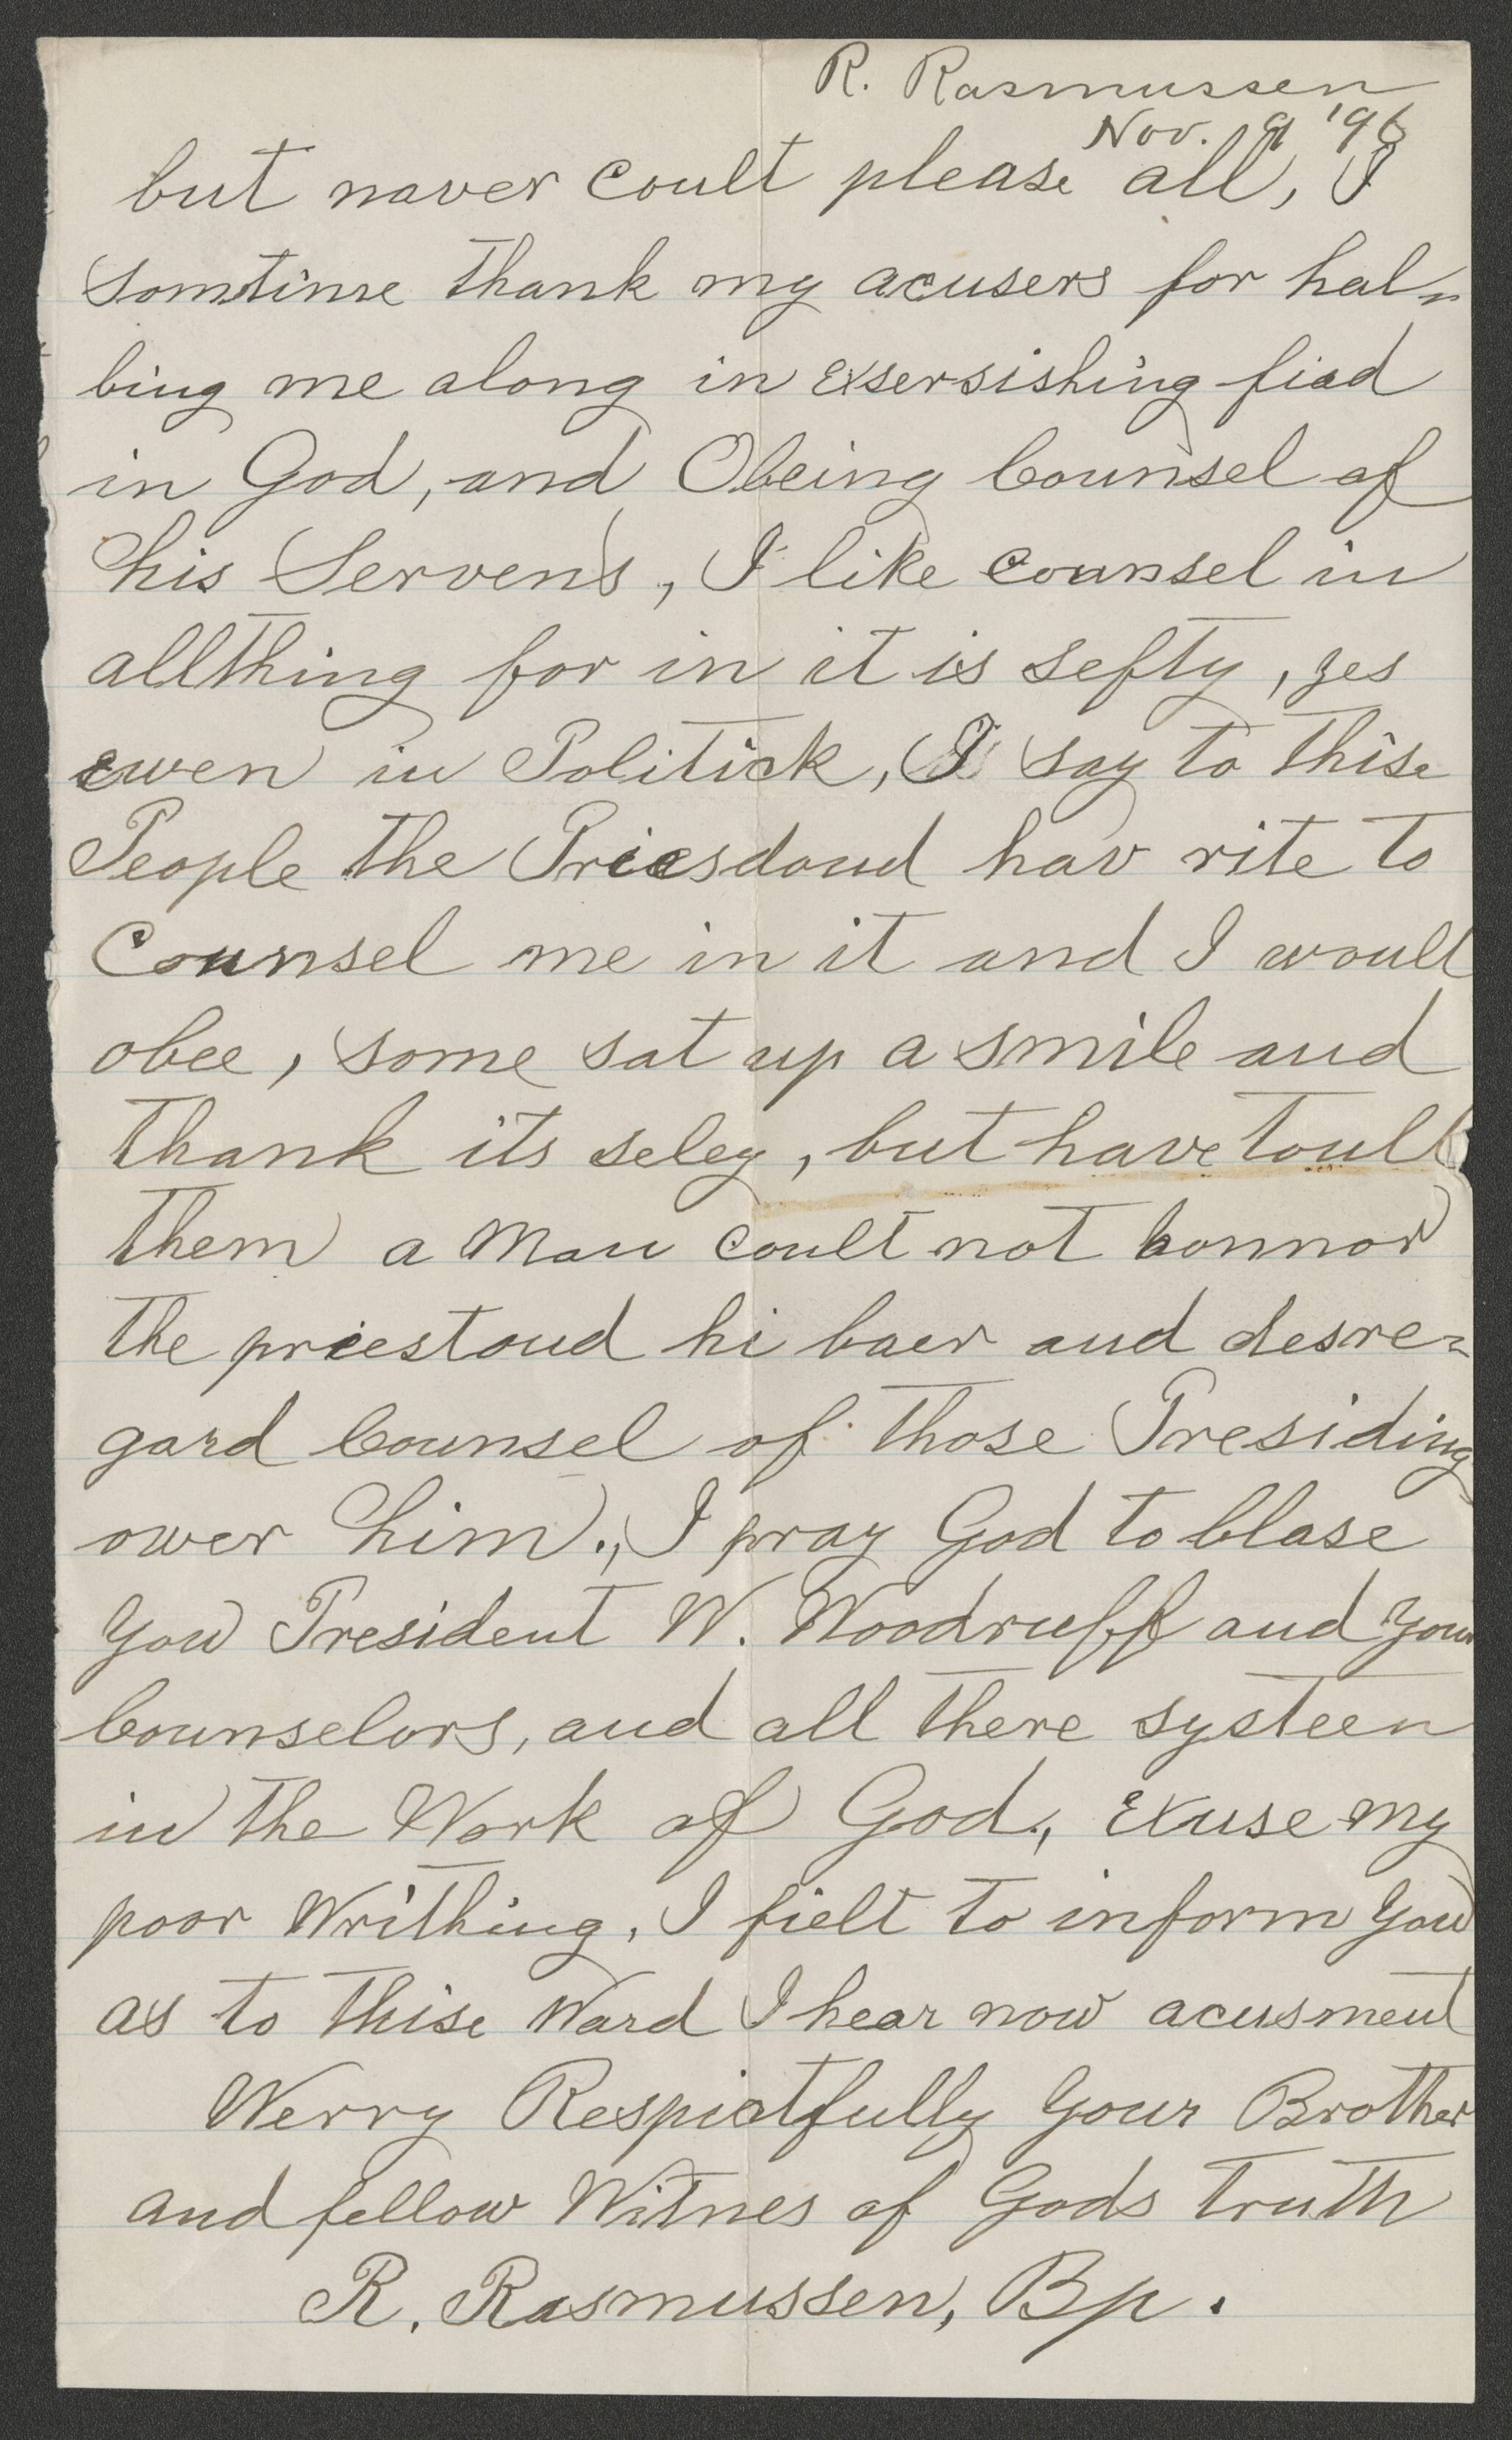 R. Rasmussen
Nov. 9 '96
but naver coult please all, I
somtime thank my acusers for hal-
bing me along in exsersishing fiad
in God, and Obeing Counsel of
his Servens, I like counsel in
allthing for in it is sefty, yes
ewen in Politick, I say to thise
People the Priesdoud hav rite to
Counsel me in it and I woult
obee, some sat up a smile and
thank its seley, but have toult
them a Man coult not honnor
the priestoud hi baer and desre=
gard Counsel of those Presiding
ower him., I pray God to blase
you President W. Woodruff and your
Counselors, and all there systeen
in the Work of God., exuse my
poor Writhing, I fielt to inform you
as to thise Ward I hear now acusment
Werry Respictfully your Brother
and fellow Witnes of Gods truth
R. Rasmussen, Bp.